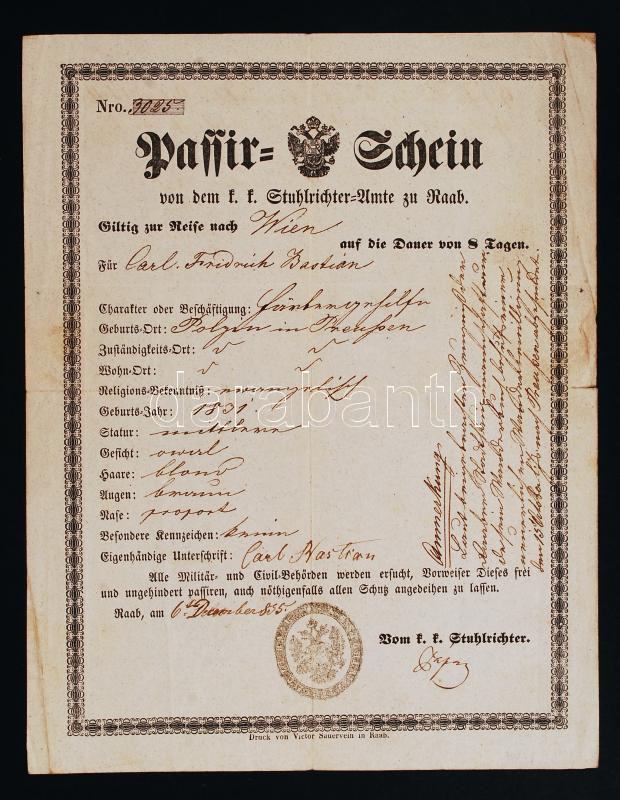 Nro. 3025.
Passir= Schein
von dem k. k. Stuhlrichter=Amte zu Raab.
Giltig zur Reise nach Wien
auf die Dauer von 8 Tagen.
Für Carl. Fridrich Bastian
Charakter oder Beschäftigung: Färbergehilfe
Geburts=Ort: Polzin in Preußen
Zuständigkeits=Ort:
Wohn=Ort:
Religions=Bekenntniß: evangelisch
Geburts=Jahr: 1831
Statur: mittlere
Gesicht: oval
Haare: blond
Augen: braun
Nase: proport
Besondere Kennzeichen: keine
Eigenhändige Unterschrift: Carl Bastian
Alle Militär= und Civil=Behörden werden ersucht, Vorweiser Dieses frei
und ungehindert passiren, auch nöthigenfalls allen Schutz angedeihen zu lassen.
Raab, am 6 December 855
Vom k. k. Stuhlrichter.
Druck von Victor Sauervein in Raab.
Anmerkung
darabanth